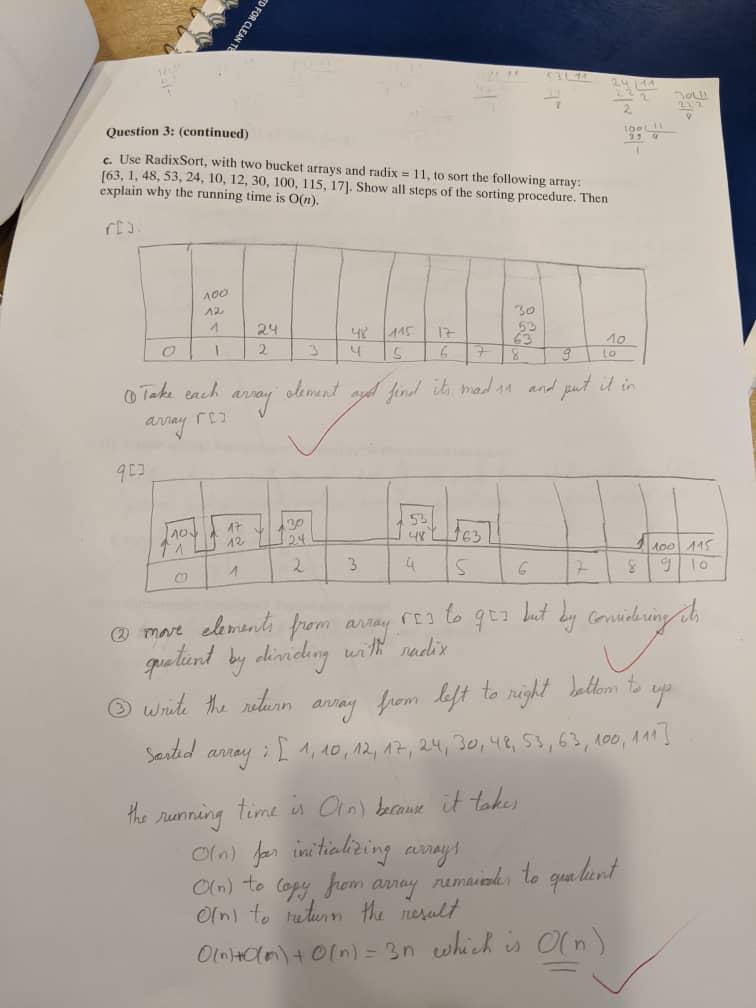 D FOR CLEAN TE
53 11
24 11
22 2
2
30 11
22 2
8
100 11
99 9
1
Question 3: (continued)
c. Use RadixSort, with two bucket arrays and radix = 11, to sort the following array:
[63, 1, 48, 53, 24, 10, 12, 30, 100, 115, 17]. Show all steps of the sorting procedure. Then
explain why the running time is O(n).
r[].
100
12 30
1 24 48 115 17 53 10
63
0 1 2 3 4 5 6 7 8 9 10
① Take each array element and find its mod 11 and put it in
array r[]
q[]
10 17 30 53
1 12 24 48 63 100 115
0 1 2 3 4 5 6 7 8 9 10
② move elements from array r[] to q[] but by considering its
quotient by dividing with radix
③ write the return array from left to right bottom to up
Sorted array : [ 1, 10, 12, 17, 24, 30, 48, 53, 63, 100, 111]
the running time is O(n) because it takes
O(n) for initializing arrays
O(n) to copy from array to
O(n) to return the result
O(n)+O(n)+O(n) = 3n which is O(n)